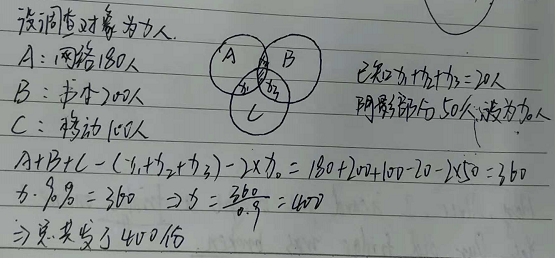 设调查对象为x人.
A：网络180人
B：书本200人
C：移动100人
A B C x₁ x₃
已知x₁+x₂+x₃=20人
阴影部分50人,设为x₀人
A+B+C-(x₁+x₂+x₃)-2×x₀=180+200+100-20-2×50=360
x·90%=360 ⇒x=360/0.9=400
⇒总共发了400份